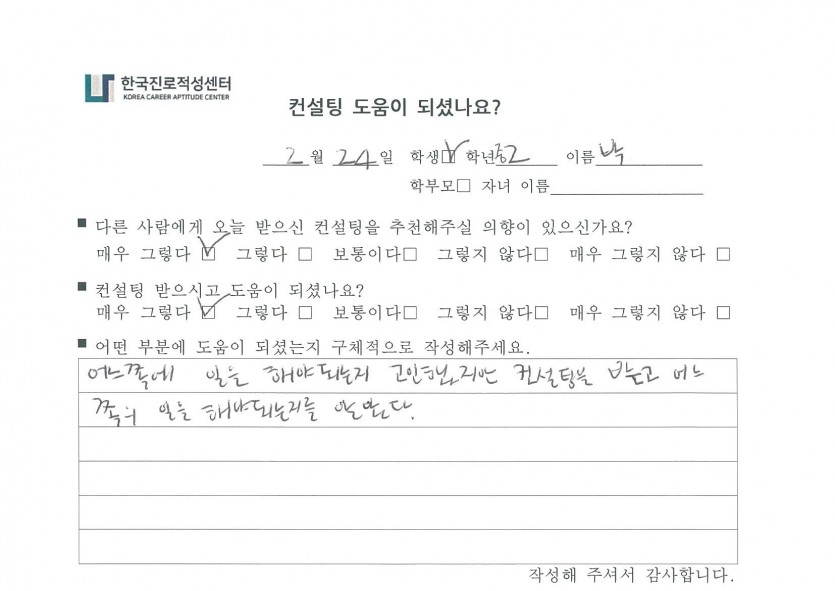 한국진로적성센터
KOREA CAREER APTITUDE CENTER
컨설팅 도움이 되셨나요?
2월 24일 학생☑ 학년 중2 이름 박
학부모□ 자녀 이름
■ 다른 사람에게 오늘 받으신 컨설팅을 추천해주실 의향이 있으신가요?
매우 그렇다 ☑ 그렇다 □ 보통이다□ 그렇지 않다□ 매우 그렇지 않다 □
■ 컨설팅 받으시고 도움이 되셨나요?
매우 그렇다 ☑ 그렇다 □ 보통이다□ 그렇지 않다□ 매우 그렇지 않다 □
■ 어떤 부분에 도움이 되셨는지 구체적으로 작성해주세요.
어느쪽에 일을 해야되는지 고민했지만 컨설팅을 받고 어느
쪽의 일을 해야되는지를 알았다.
작성해 주셔서 감사합니다.